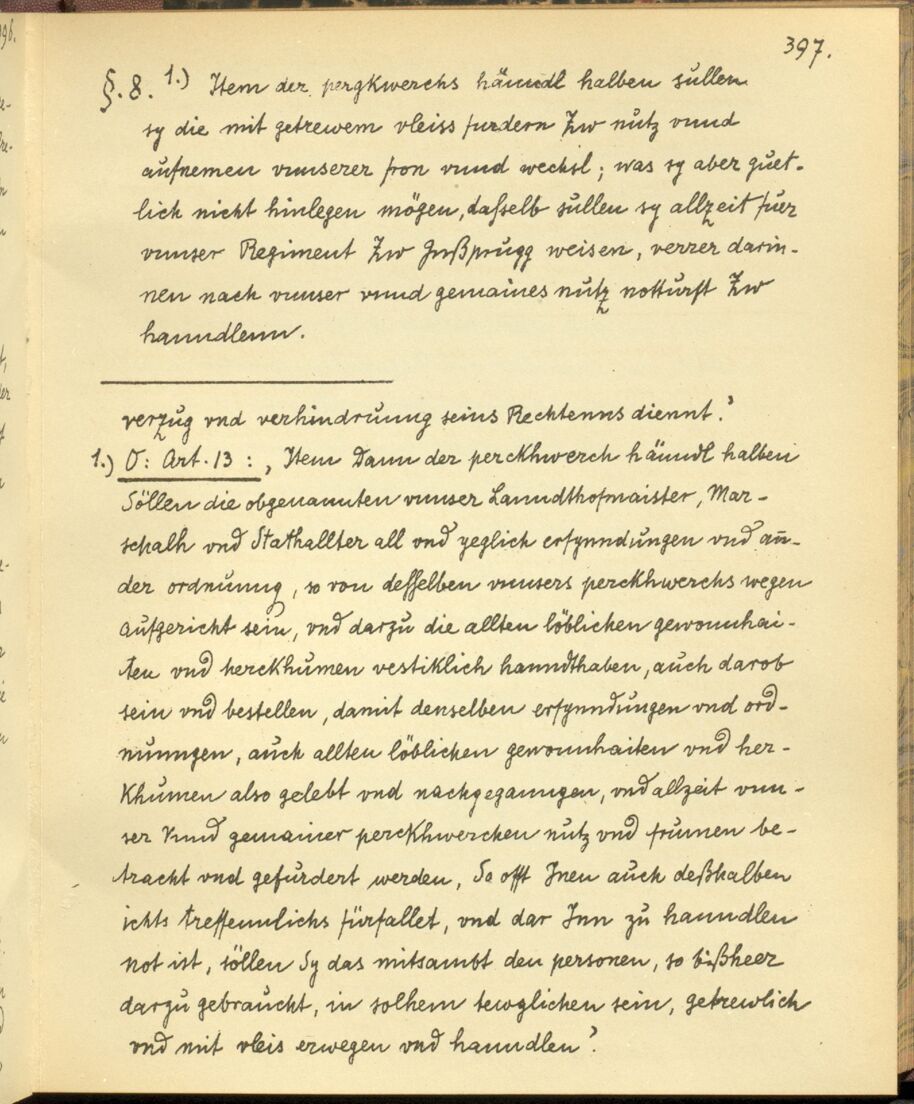 397.
§. 8. 1.) Item der pergkwerchs hänndl halben sullen
sy die mit getrewem vleiss furdern Zw nutz vnnd
aufnemen vnnserer fron vnnd wechsl; was sy aber guet-
lich nicht hinlegen mögen, dasselb sullen sy allzeit fuer
vnnser Regiment Zw Jnßprugg weisen, verrer darin-
nen nach vnnser vnnd gemaines nutz notturft Zw
hanndlenn.
verzug vnd verhindrunng seins Rechtenns diennt.'
1.) O: Art. 13 :, Item Dann der perckhwerch hänndl halben
Söllen die obgenannten vnnser Lanndthofmaister, Mar-
schalh vnd Stathallter all vnd yeglich erfynndungen vnd an-
der ordnunng, so von desselben vnnsers perckhwerchs wegen
aufgericht sein, vnd darzu die allten löblichen gewonnhai-
ten vnd herckhumen vestiklich hanndthaben, auch darob
sein vnd bestellen, damit denselben erfynndungen vnd ord-
nunngen, auch allten löblichen gewonnhaiten vnd her-
khumen also gelebt vnd nachgeganngen, vnd allzeit vnn-
ser vnnd gemainer perckhwerchen nutz vnd frumen be-
tracht vnd gefurdert werden, So offt Jnen auch deßhalben
ichts treffennlichs fürfallet, vnd dar Jnn zu hanndlen
not ist, söllen Sy das mitsambt den personen, so bißheer
darzu gebraucht, in solhem tewglichen sein, getrewlich
vnd mit vleis erwegen vnd hanndlen'.